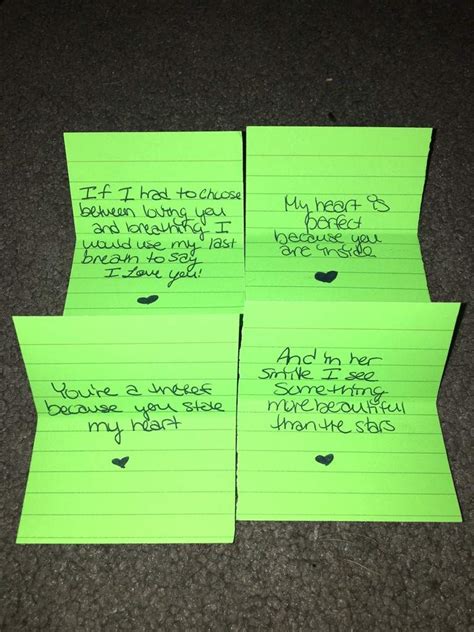 If I had to choose
between loving you
and breathing I
would use my last
breath to say
I Love you!
My heart is
perfect
because you
are inside
You're a theief
because you stole
my heart
And in her
simile I see
something
more beautiful
than the stars